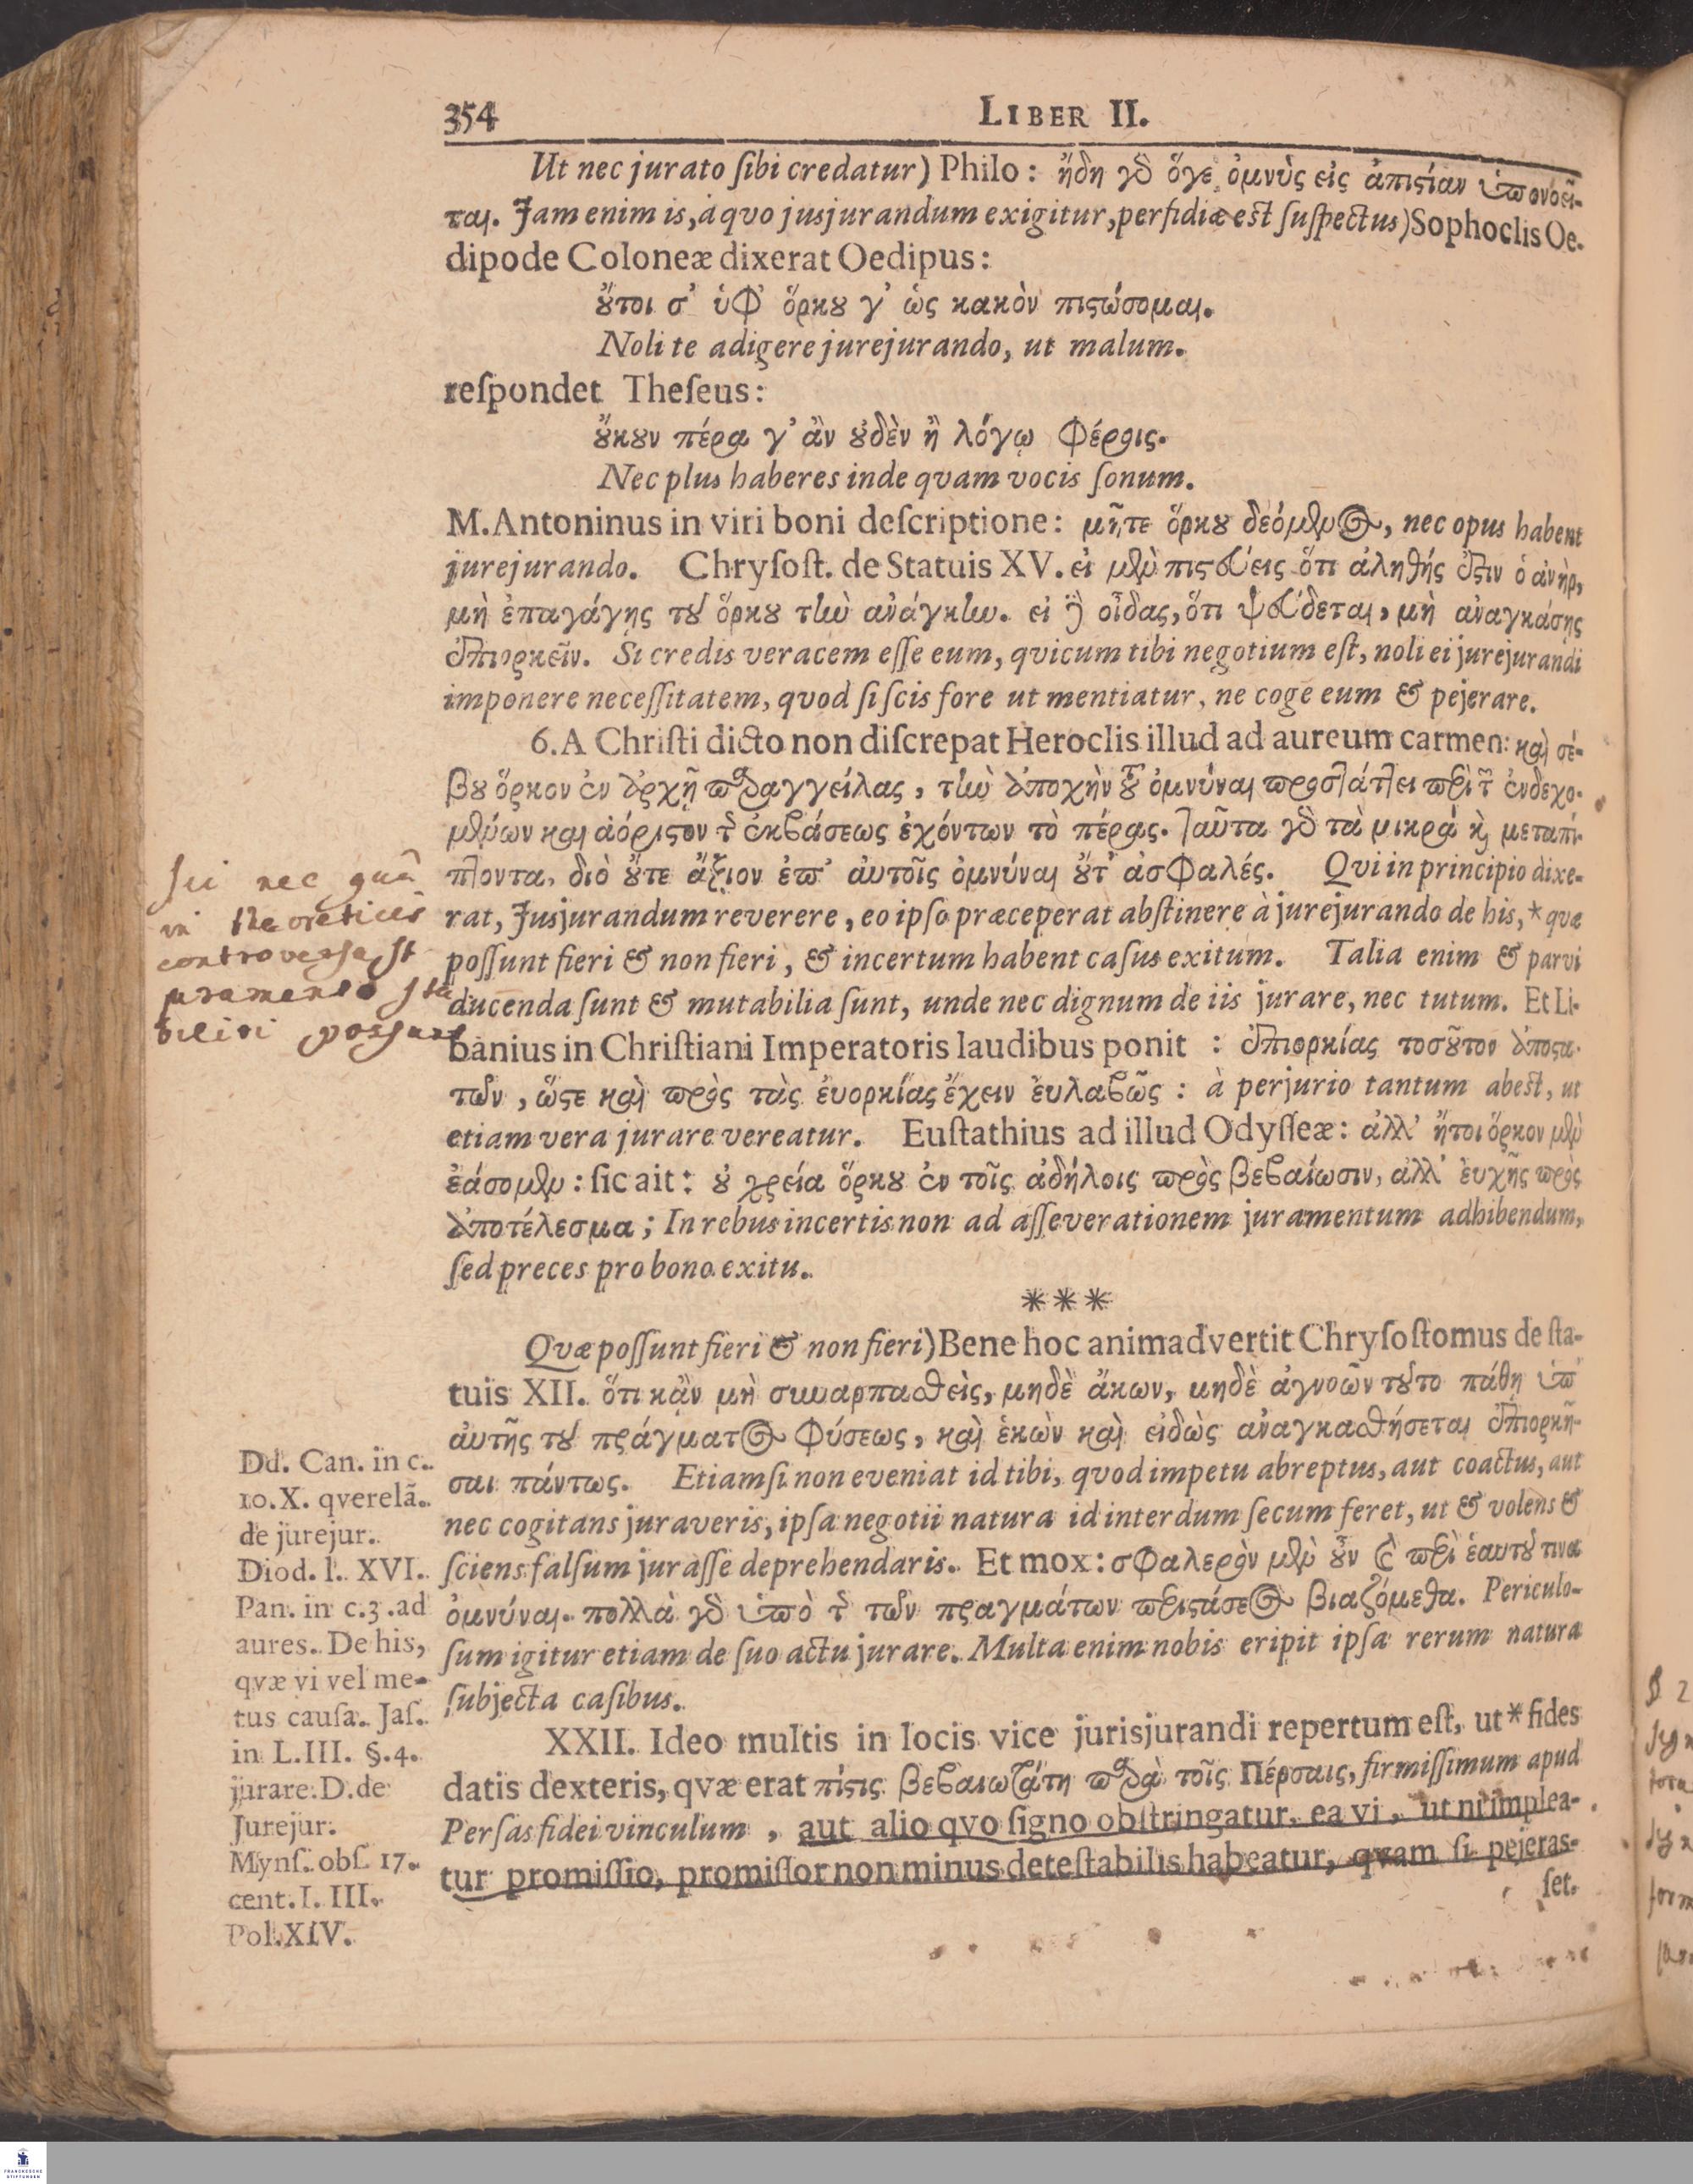 354 LIBER II.
Ut nec jurato ſibi credatur) Philo: ἤδη γὸ ὅγε ὀμνὺς εἰς ἀπιςίαν ὑπονοεῖ-
ται. Jam enim is, à quo jusjurandum exigitur, perfidiæ eſt ſuſpectus) Sophoclis Oe-
dipode Coloneæ dixerat Oedipus:
ὔτοι σ' ὑφ' ὅρκȣ γ' ὡς κακὸν πιςώσομαι.
Noli te adigere jurejurando, ut malum.
reſpondet Theſeus:
ὔκȣν πέρα γ' ἂν ȣ̓δὲν ἢ λόγῳ φέροις.
Nec plus haberes inde qvam vocis ſonum.
M. Antoninus in viri boni deſcriptione: μήτε ὅρκȣ δεόμενος, nec opus habent
jurejurando. Chryſoſt. de Statuis XV. εἰ μὲν πιςεύεις ὅτι ἀληθής ἐςιν ὁ ἀνὴρ,
μὴ ἐπαγάγης τȣ͂ ὅρκȣ τὴν ἀνάγκην. εἰ δὲ οἶδας, ὅτι ψεύδεται, μὴ ἀναγκάσης
ἐπιορκεῖν. Si credis veracem eſſe eum, qvicum tibi negotium eſt, noli ei jurejurandi
imponere neceſſitatem, quod ſi ſcis fore ut mentiatur, ne coge eum & pejerare.
6. A Chriſti dicto non diſcrepat Heroclis illud ad aureum carmen: καὶ σέ-
βȣ ὅρκον ἐν ἀρχῇ παραγγείλας, τὴν ἀποχὴν τȣ͂ ὀμνύναι προστάττει περὶ τῶν ἐνδεχο-
μένων καὶ ἀόριςον τῆς ἐκβάσεως ἐχόντων τὸ πέρας. ταῦτα γὸ τὰ μικρά καὶ μεταπί-
πτοντα, διὸ ὔτε ἄξιον ἐπ' αὐτοῖς ὀμνύναι ὔτ' ἀσφαλές. Qui in principio dixe-
rat, Jusjurandum reverere, eo ipſo præceperat abſtinere à jurejurando de his, * quæ
poſſunt fieri & non fieri, & incertum habent caſus exitum. Talia enim & parvi
ducenda ſunt & mutabilia ſunt, unde nec dignum de iis jurare, nec tutum. Et Li-
banius in Chriſtiani Imperatoris laudibus ponit : ἐπιορκίας τοσȣ͂τον ἀποςα-
τῶν, ὥςε καὶ πρὸς τὰς εὐορκίας ἔχειν εὐλαβῶς : à perjurio tantum abeſt, ut
etiam vera jurare vereatur. Euſtathius ad illud Odyſſeæ: ἀλλ' ἤτοι ὅρκον μὲν
ἐάσομεν : ſic ait: ȣ̓ χρεία ὅρκȣ ἐν τοῖς ἀδήλοις πρὸς βεβαίωσιν, ἀλλ' εὐχῆς πρὸς
ἀποτέλεσμα; In rebus incertis non ad aſſeverationem juramentum adhibendum,
ſed preces pro bono exitu.
***
Quæ poſſunt fieri & non fieri) Bene hoc animadvertit Chryſoſtomus de ſta-
tuis XII. ὅτι κἂν μὴ συναρπασθεὶς, μηδὲ ἄκων, μηδὲ ἀγνοῶν τȣ͂το πάθῃ ὑπ'
αὐτῆς τȣ͂ πράγματος φύσεως, καὶ ἑκὼν καὶ εἰδὼς ἀναγκασθήσεται ἐπιορκῆ-
σαι πάντως. Etiamſi non eveniat id tibi, qvod impetu abreptus, aut coactus, aut
nec cogitans juraveris, ipſa negotii natura id interdum ſecum feret, ut & volens &
ſciens falſum juraſſe deprehendaris. Et mox: σφαλερὸν μὲν ȣ̓͂ν καὶ περὶ ἑαυτȣ͂ τινα
ὀμνύναι. πολλὰ γὸ ὑπὸ τῆς τῶν πραγμάτων περιςάσεως βιαζόμεθα. Periculo-
ſum igitur etiam de ſuo actu jurare. Multa enim nobis eripit ipſa rerum natura
ſubjecta caſibus.
XXII. Ideo multis in locis vice jurisjurandi repertum eſt, ut * fides
datis dexteris, qvæ erat πίςις βεβαιωτάτη παρὰ τοῖς Πέρσαις, firmiſſimum apud
Perſas fidei vinculum, aut alio qvo ſigno obſtringatur, ea vi, ut ni implea-
tur promiſſio, promiſſor non minus deteſtabilis habeatur, qvam ſi pejeras-
ſet.
nec quâ
in theoreticis
controversa st
juramento sta
biliri possunt
Dd. Can. in c.
10. X. qverelã.
de jurejur.
Diod. l. XVI.
Pan. in c. 3. ad
aures. De his,
qvæ vi vel me-
tus cauſa. Jaſ.
in L. III. §. 4.
jurare. D. de
Jurejur.
Mynſ. obſ. 17.
cent. I. III.
Pol. XIV.
FRANCKESCHE
STIFTUNGEN